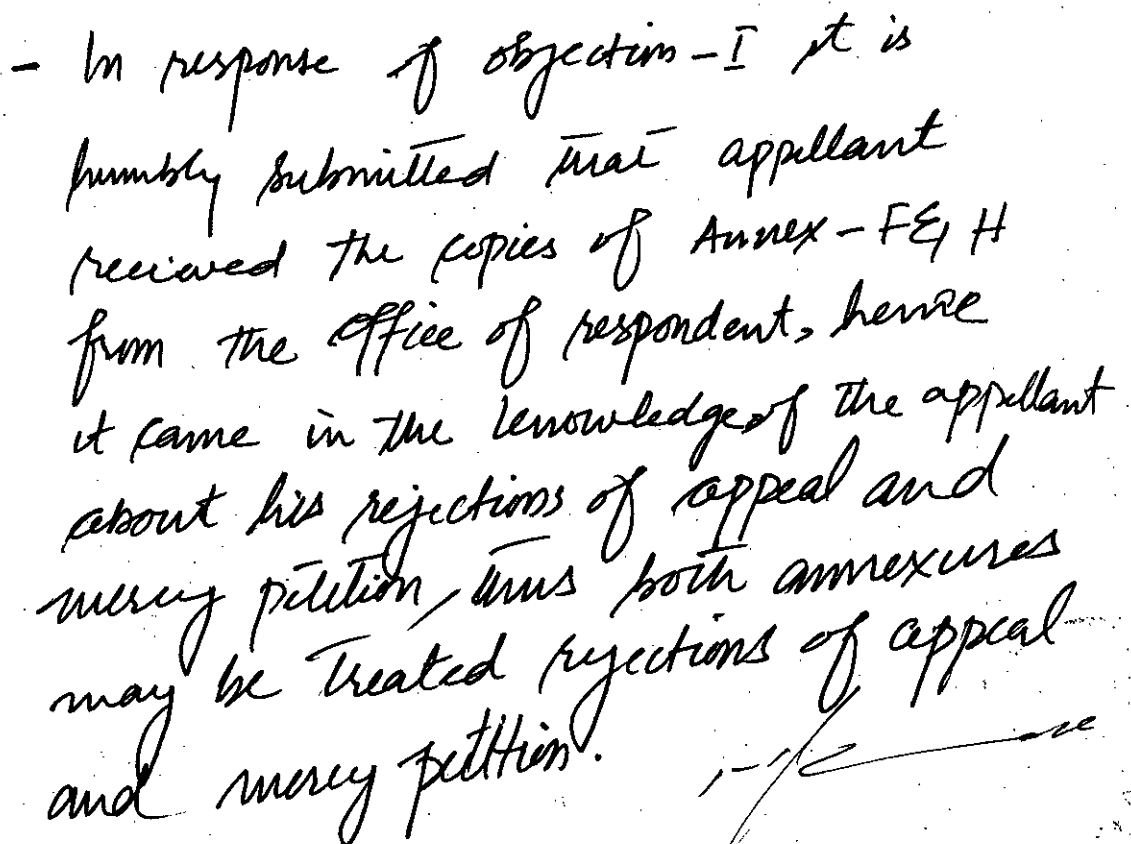 - In response of objection-I it is
humbly submitted that appellant
recieved the copies of Annex-F & H
from the office of respondent, hence
it came in the knowledge of the appellant
about his rejections of appeal and
mercy petition, thus both annexures
may be treated rejections of appeal
and mercy petition.